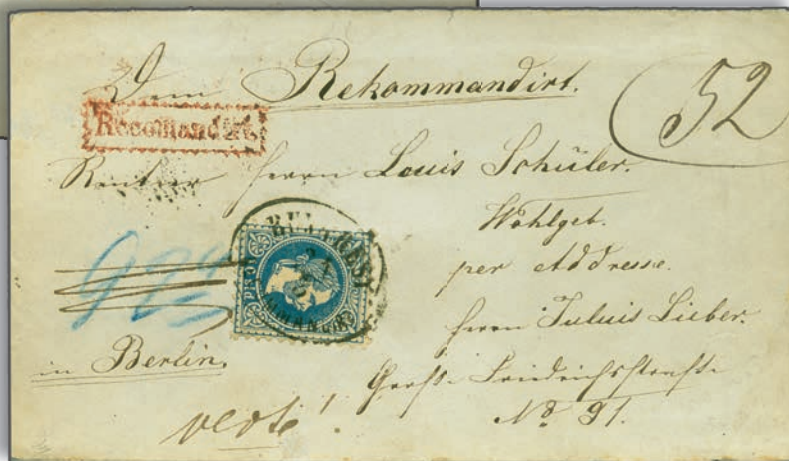 Dem Rekommandirt.
52
Recomandirt.
Rentier Herrn Louis Schüler.
Wohlgeb.
per Addresse.
Herrn Juluis Lieber.
in Berlin.
Große Friedrichstraße
No 91.
verte!
BUKAREST